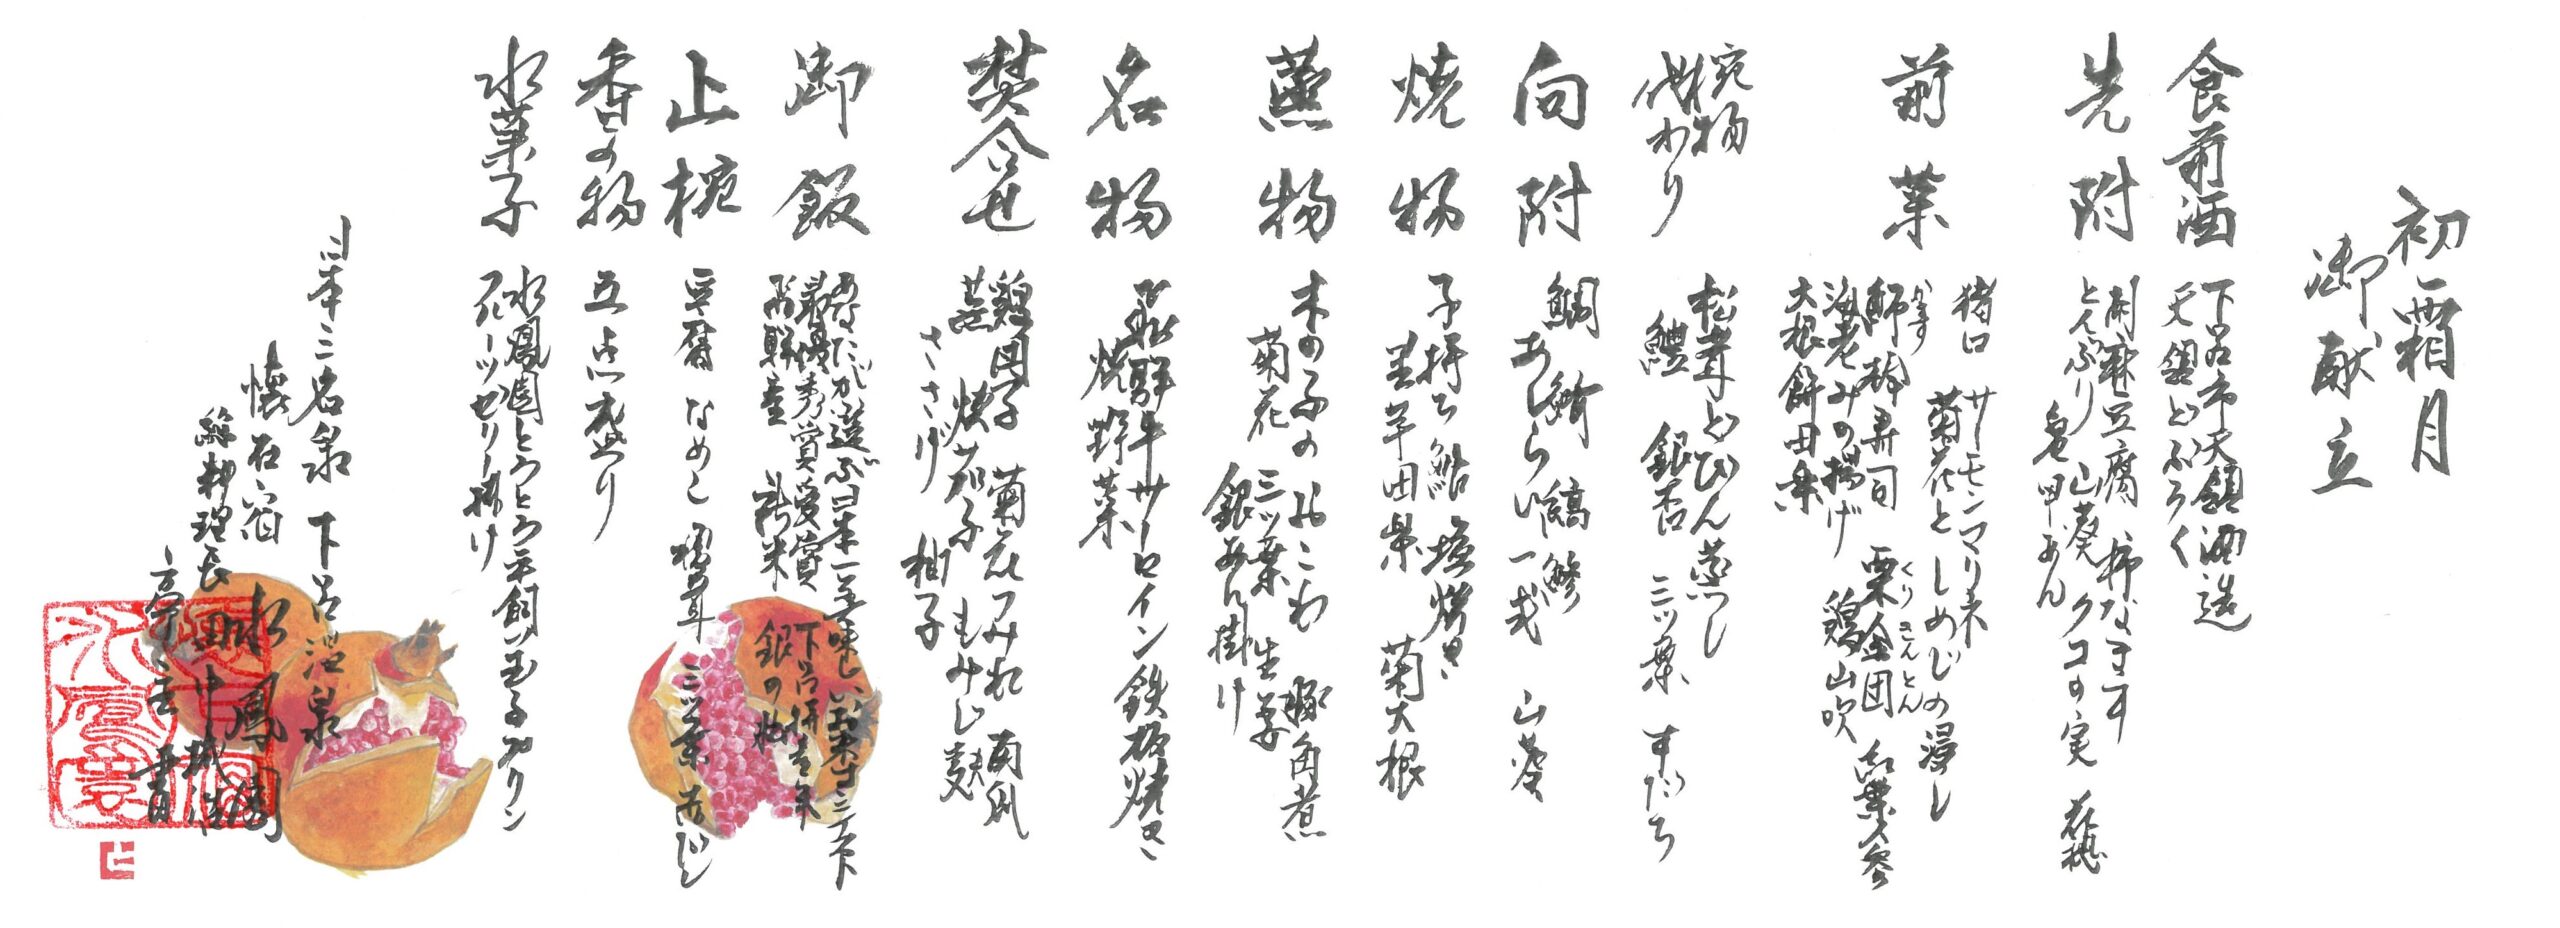 初霜月
御献立
食前酒
下呂市天領酒造
天領どぶろく
先附
胡麻豆腐 柿なます
とんぶり 山葵 クコの実 花穂
鼈甲あん
前菜
猪口 サーモンマリネ
菊花としめじの浸し
かます
魳棒寿司 栗金団 紅葉人参
くりきんとん
海老みの揚げ 鶏山吹
大根餅田楽
椀物
代わり
松茸どびん蒸し
鱧 銀杏 三ツ葉 すだち
向附
鯛 鰤 縞鯵
あしらい一式 山葵
焼物
子持ち鮎塩焼き
里芋田楽 菊大根
蒸物
木の子のおこわ 豚角煮
菊花 三ツ葉 生姜
銀あん掛け
名物
飛騨牛サーロイン鉄板焼き
焼野菜
焚合せ
鶏団子 菊花つみれ 南瓜
蕪 焼茄子 もみじ麩
ささげ 柚子
御飯
あなたが選ぶ日本一美味しいお米コンテスト
最優秀賞受賞 下呂研吉年
飛騨産 新米 銀の朏
止椀
豆腐 なめこ 椎茸 三ツ葉 赤だし
香の物
五点盛り
水菓子
水鳳園とろとろ平飼い玉子プリン
フルーツゼリー掛け
日本三名泉 下呂温泉
懐石宿 水鳳園
総料理長 田中